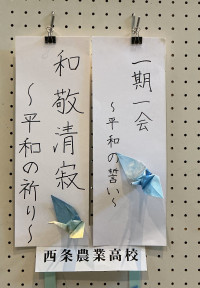 一期一会
~平和の誓い~
和敬清寂
~平和の祈り~
西条農業高校